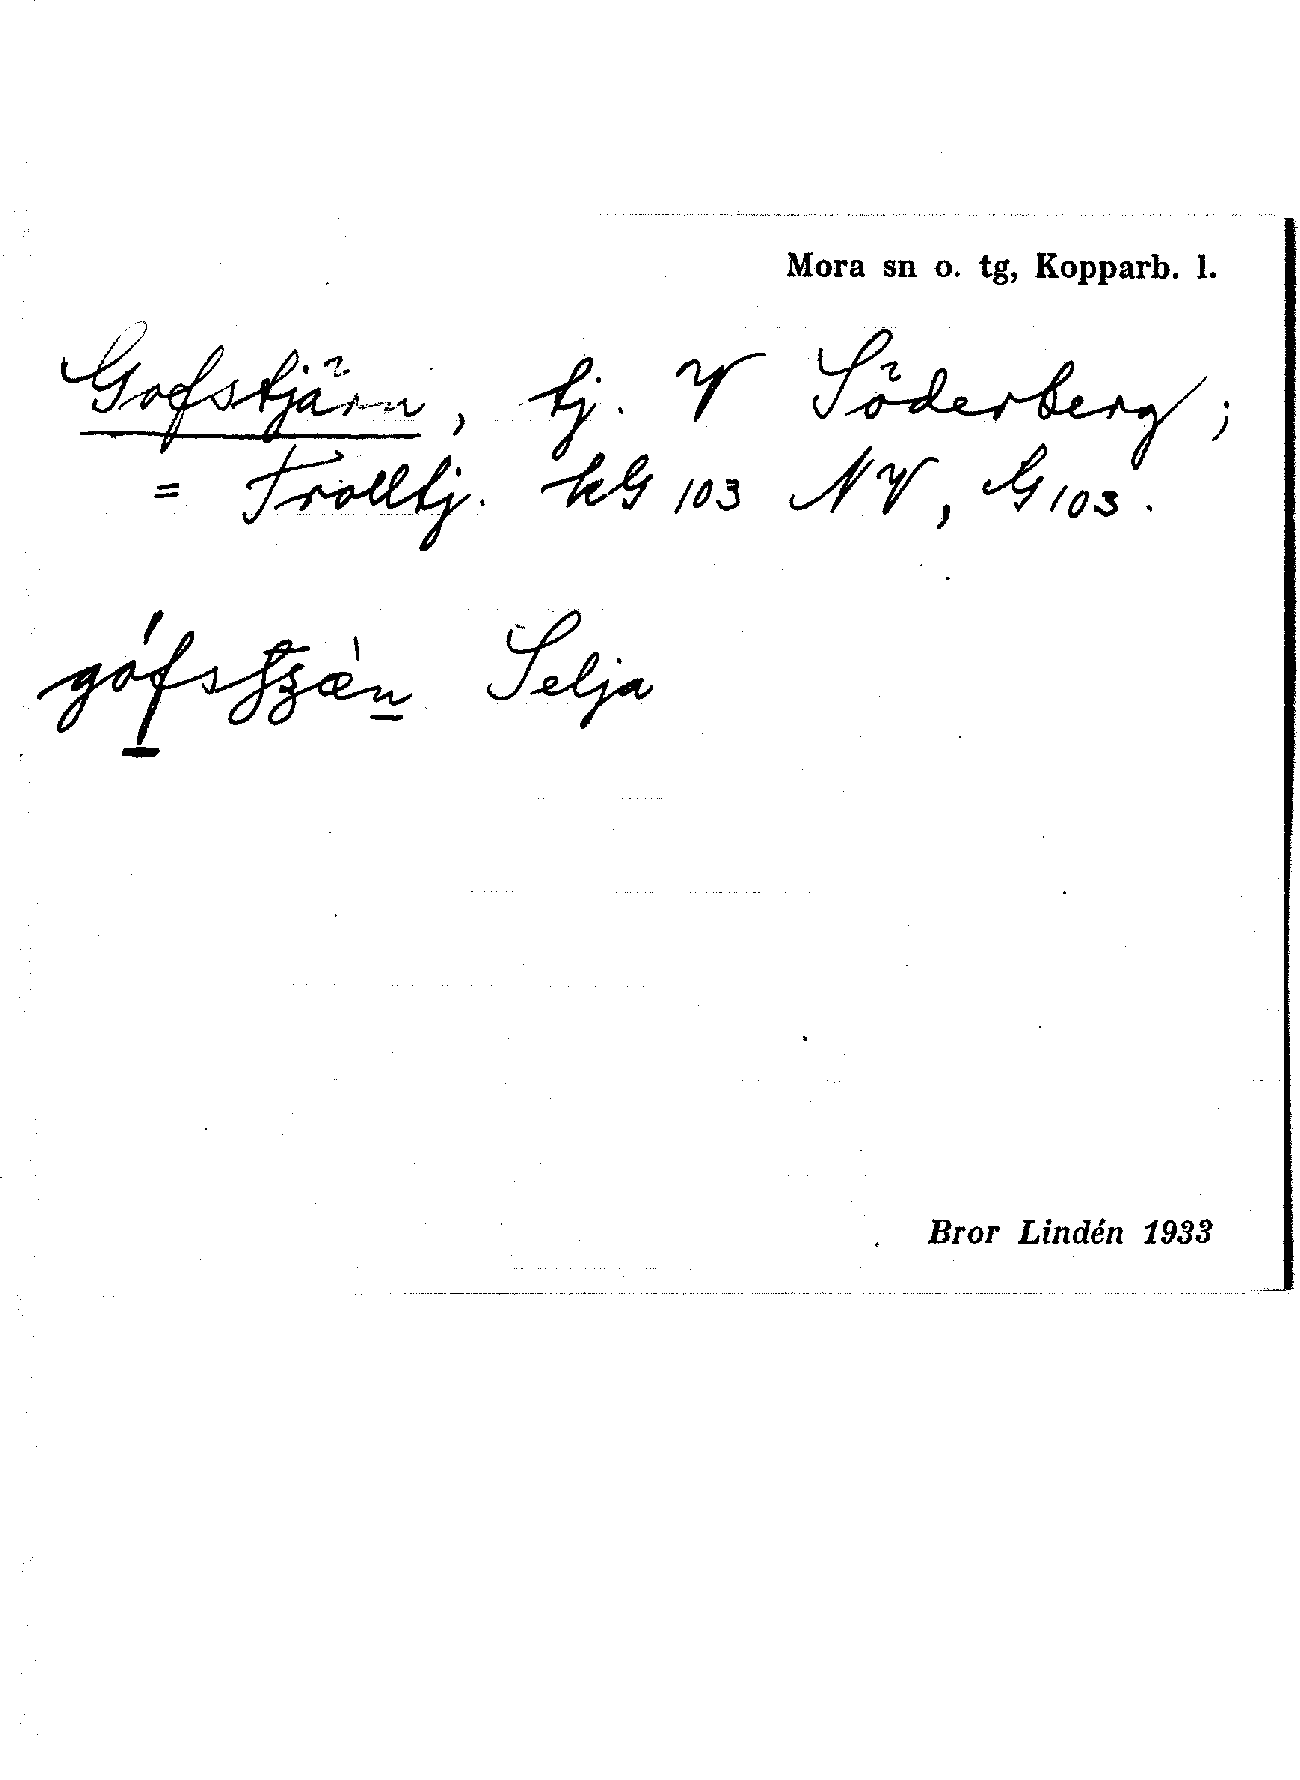 Mora sn o. tg, Kopparb. l.
Gofstjärn, tj. V Söderberg;
= Trolltj. kG 103 NV, G 103.
Selja
Bror Lindén 1933